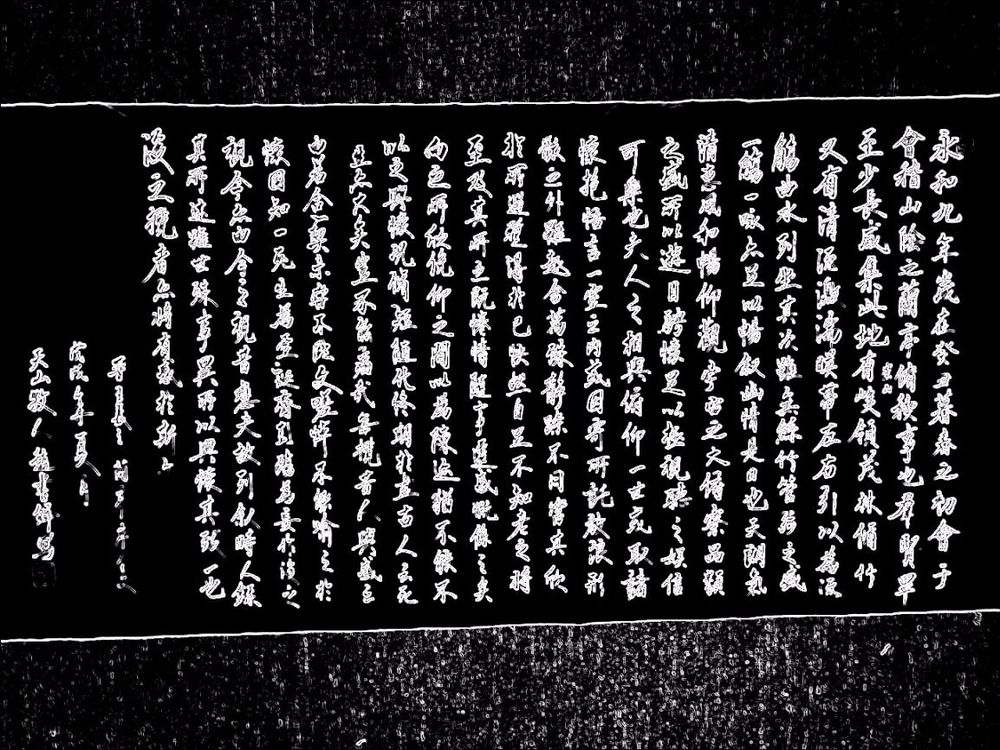 永和九年歲在癸丑暮春之初會于
會稽山陰之蘭亭脩稧事也群賢畢
至少長咸集此地有崇山峻領茂林脩竹
又有清流激湍暎帶左右引以為流
觴曲水列坐其次雖無絲竹管弦之盛
一觴一詠亦足以暢敘幽情是日也天朗氣
清惠風和暢仰觀宇宙之大俯察品類
之盛所以遊目騁懷足以極視聽之娛信
可樂也夫人之相與俯仰一世或取諸
懷抱悟言一室之內或因寄所託放浪形
骸之外雖趣舍萬殊靜躁不同當其欣
於所遇蹔得於己快然自足不知老之將
至及其所之既惓情隨事遷感慨係之矣
向之所欣俛仰之閒以為陳迹猶不能不
以之興懷況脩短隨化終期於盡古人云死
生亦大矣豈不痛哉每攬昔人興感之
由若合一契未嘗不臨文嗟悼不能喻之於
懷固知一死生為虛誕齊彭殤為妄作後之
視今亦由今之視昔悲夫故列敘時人錄
其所述雖世殊事異所以興懷其致一也
後之攬者亦將有感於斯文
戊戌年夏月
天山散人